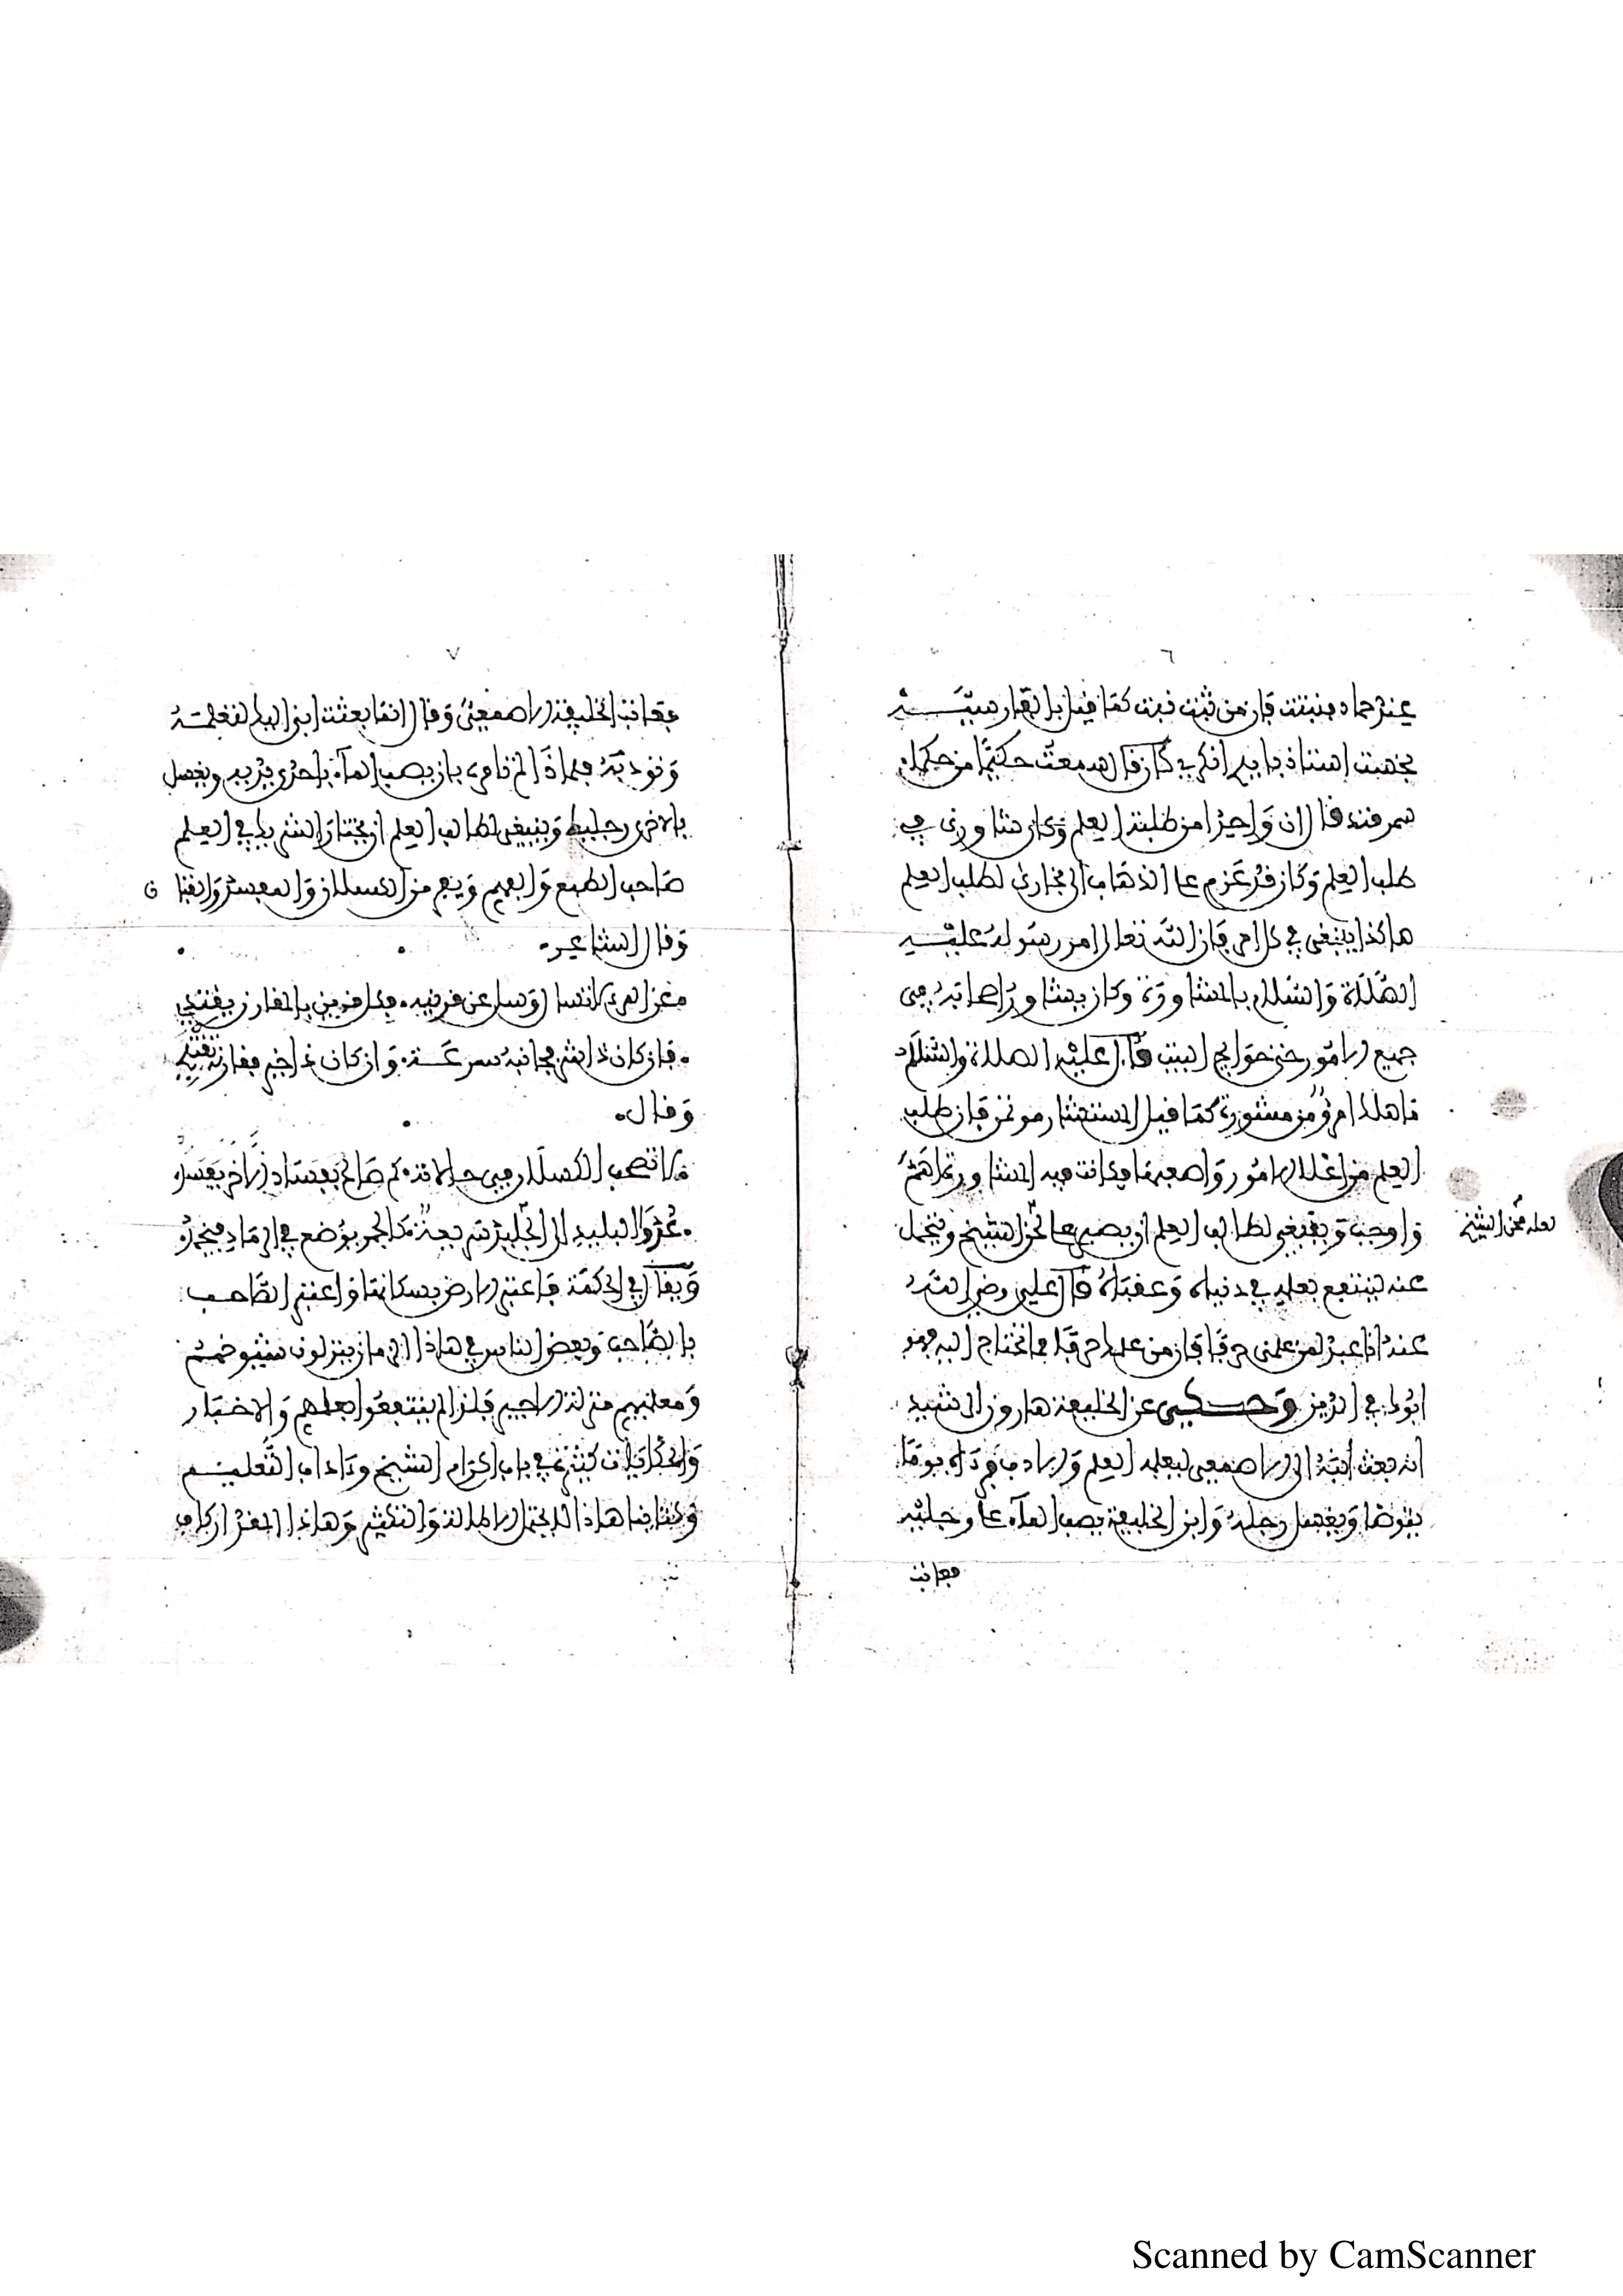 ٦
عند حماد فنبتت فإن من ثبت نبت كما قيل بالتقار سيب
فذهبت استاذ بابير انكر في كازفال سمعت حكيما من حكماء
سمرقند قال ان واحدا من طلبة العلم وكان شاورني في
طلب العلم وكان قد عزم على الذهاب الى بخارى لطلب العلم
هاكذا ينبغي في كل امر فان الله تعالى امر رسوله عليه
الصلاة والسلام بالمشاورة وكان يشاور اصحابه في
جميع الامور حتى حوايج البيت قال عليه الصلاة والسلام
ما هلك امرؤ من مشورة كما قيل المستشار مؤتمن فان طلب
العلم من اعلا الامور واصعبها فكانت فيه المشاورة اهم
واوجب وينبغي لطالب العلم ان يصبر على الشيخ ويتحمل
لعله محن الشيخ
عنه لينتفع بعلمه في دنياه وعقباه قال علي رضي الله
عنه انا عبد لمن علمني حرفا فان من علمك حرفا مما تحتاج اليه فهو
ابوك في الدين وحكي عن الخليفة هارون الرشيد
انه بعث ابنه الى الاصمعي ليعلمه العلم والادب فرءاه يوما
يتوضا ويغسل رجله وابن الخليفة يصب الماء على رجليه
فعاتب
٧
فعاتب الخليفة الاصمعي وقال انما بعثت ابني اليك لتعلمه
وتودبه فلماذا لم تامره بان يصب الماء باحدى يديه ويغسل
بالاخرى رجليك وينبغي لطالب العلم ان يختار الشريك في العلم
صاحب الطبع والفهم ويفر من الكسلان والمفسد والفتا
ن
وقال الشاعر
عن المرء لا تسال وسل عن قرينه فكل قرين بالمقارن يقتدي
فان كان ذا شر فجانبه سرعة وان كان ذا خير فقارنه تهتدي
وقال
لا تصحب الكسلان في حالاته كم صالح بفساد ءاخر يفسد
عدوى البليد الى الجليد سريعة كالجمر يوضع في الرماد فيخمد
ويقال في الحكمة فاعتبر الارض بسكانها واعتبر الصاحب
بالصاحب وبعض الناس في هاذا الزمان ينزلون شيوخهم
ومعلميهم منزلة الاجير فلذا لم ينتفعوا بعلمهم والاخبار
والحكايات كثيرة في باب اكرام الشيخ وءاداب التعليم
وكتابنا هاذا لا يحتمل الاطالة والتكثير وهاذا القدر كاف
Scanned by CamScanner